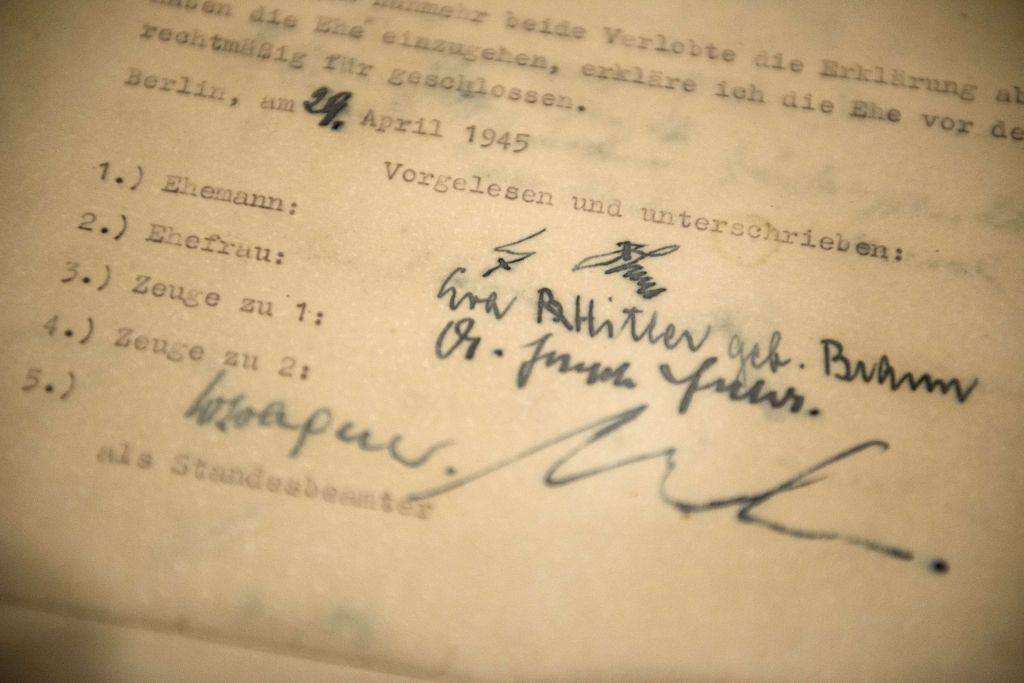 nunmehr beide Verlobte die Erklärung ab
haben die Ehe einzugehen, erkläre ich die Ehe vor de
rechtmäßig für geschlossen.
Berlin, am 29. April 1945
Vorgelesen und unterschrieben:
1.) Ehemann:
2.) Ehefrau: Eva B Hitler geb. Braun
3.) Zeuge zu 1: Dr. Joseph
4.) Zeuge zu 2:
5.) Wagner.
als Standesbeamter